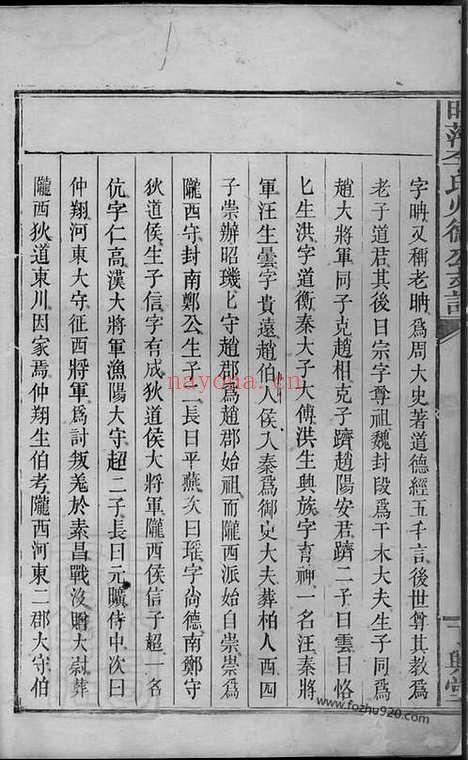 字聃又稱老聃爲周大史著道德經五千言後世尊其教爲
老子道君其後曰宗字尊祖魏封段爲干木大夫生子同爲
趙大將軍同子克趙相克子躋趙陽安君躋二子曰雲曰恪
匕生洪字道衡秦大子大傅洪生興族字育神一名汪秦將
軍汪生曇字貴遠趙伯人侯入秦爲御史大夫葬柏人西四
子崇辦昭璣匕守趙郡爲趙郡始祖而隴西派始自崇崇爲
隴西守封南鄭公生子二長曰平燕次曰瑶字尚德南鄭守
狄道侯生子信字有成狄道侯大將軍隴西侯信子超一名
伉字仁高漢大將軍漁陽大守超二子長曰元曠侍中次曰
仲翔河東大守征西將軍爲討叛羗於素昌戰沒贈大尉葬
隴西狄道東川因家焉仲翔生伯考隴西河東二郡大守伯
nayona.cn
www.fozhu920.com